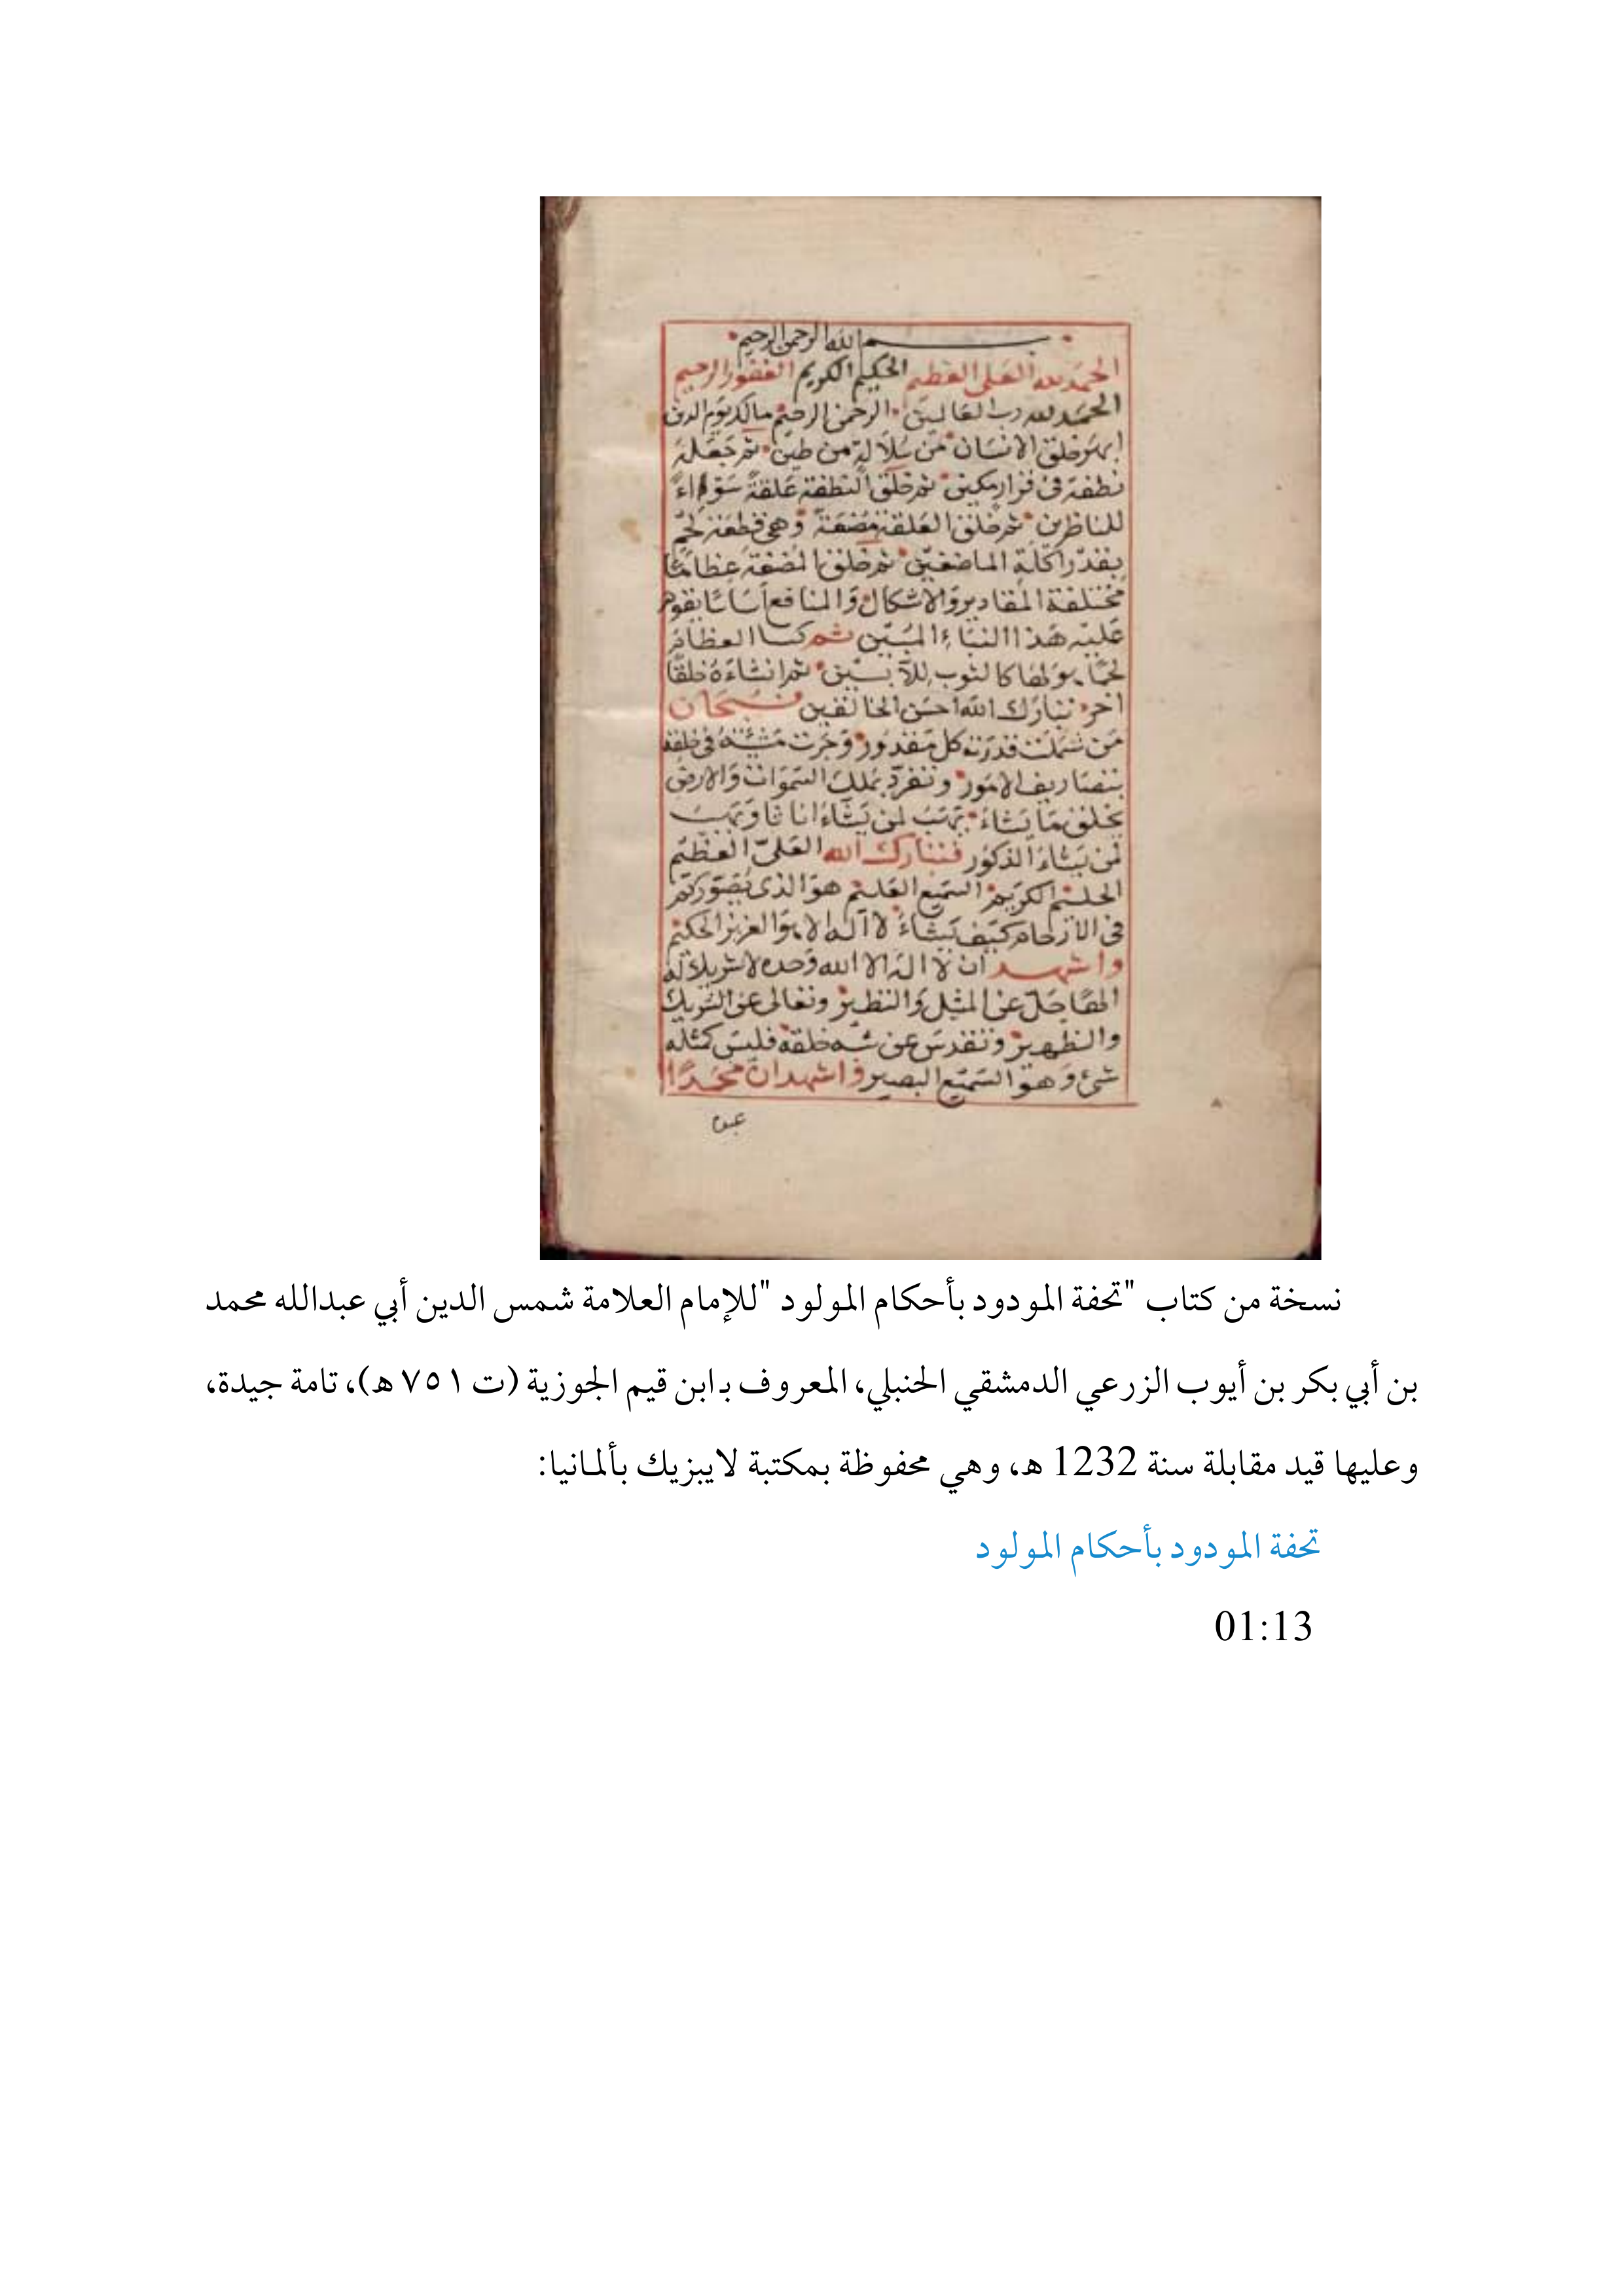 بسم الله الرحمن الرحيم
الحمد لله العلي العظيم الحكيم الكريم الغفور الرحيم
الحمد لله رب العالمين الرحمن الرحيم مالك يوم الدين
خلق الانسان من سلالة من طين ثم جعله
نطفة في قرار مكين ثم خلق النطفة علقة سوداء
للناظرين ثم خلق العلقة مضغة وهي قطعة لحم
بقدر اكلة الماضغين ثم خلق المضغة عظاما
مختلفة المقادير والاشكال والمنافع اساسا يقوم
عليه هذا البناء المبين ثم كسا العظام
لحما هو لها كالثوب للابسين ثم انشاءه خلقا
اخر تبارك الله احسن الخالقين فسبحان
من شملت قدرته كل مقدور وجرت مشئته في خلقه
بتصاريف الامور وتفرد بملك السموات والارض
يخلق ما يشاء يهب لمن يشاء اناثا ويهب
لمن يشاء الذكور فتبارك الله العلي العظيم
الحليم الكريم السميع العليم هو الذي يصوركم
في الارحام كيف يشاء لا اله الا هو العزيز الحكيم
واشهد ان لا اله الا الله وحده لا شريك له
الها جل عن المثل والنظير وتعالى عن الشريك
والظهير وتقدس عن شبه خلقه فليس كمثله
شئ وهو السميع البصير واشهد ان محمدا
نسخة من كتاب "تحفة المودود بأحكام المولود "للإمام العلامة شمس الدين أبي عبدالله محمد
بن أبي بكر بن أيوب الزرعي الدمشقي الحنبلي، المعروف بـ ابن قيم الجوزية (ت ٧٥١ هـ)، تامة جيدة،
وعليها قيد مقابلة سنة 1232 هـ، وهي محفوظة بمكتبة لايبزيك بألمانيا:
تحفة المودود بأحكام المولود
01:13